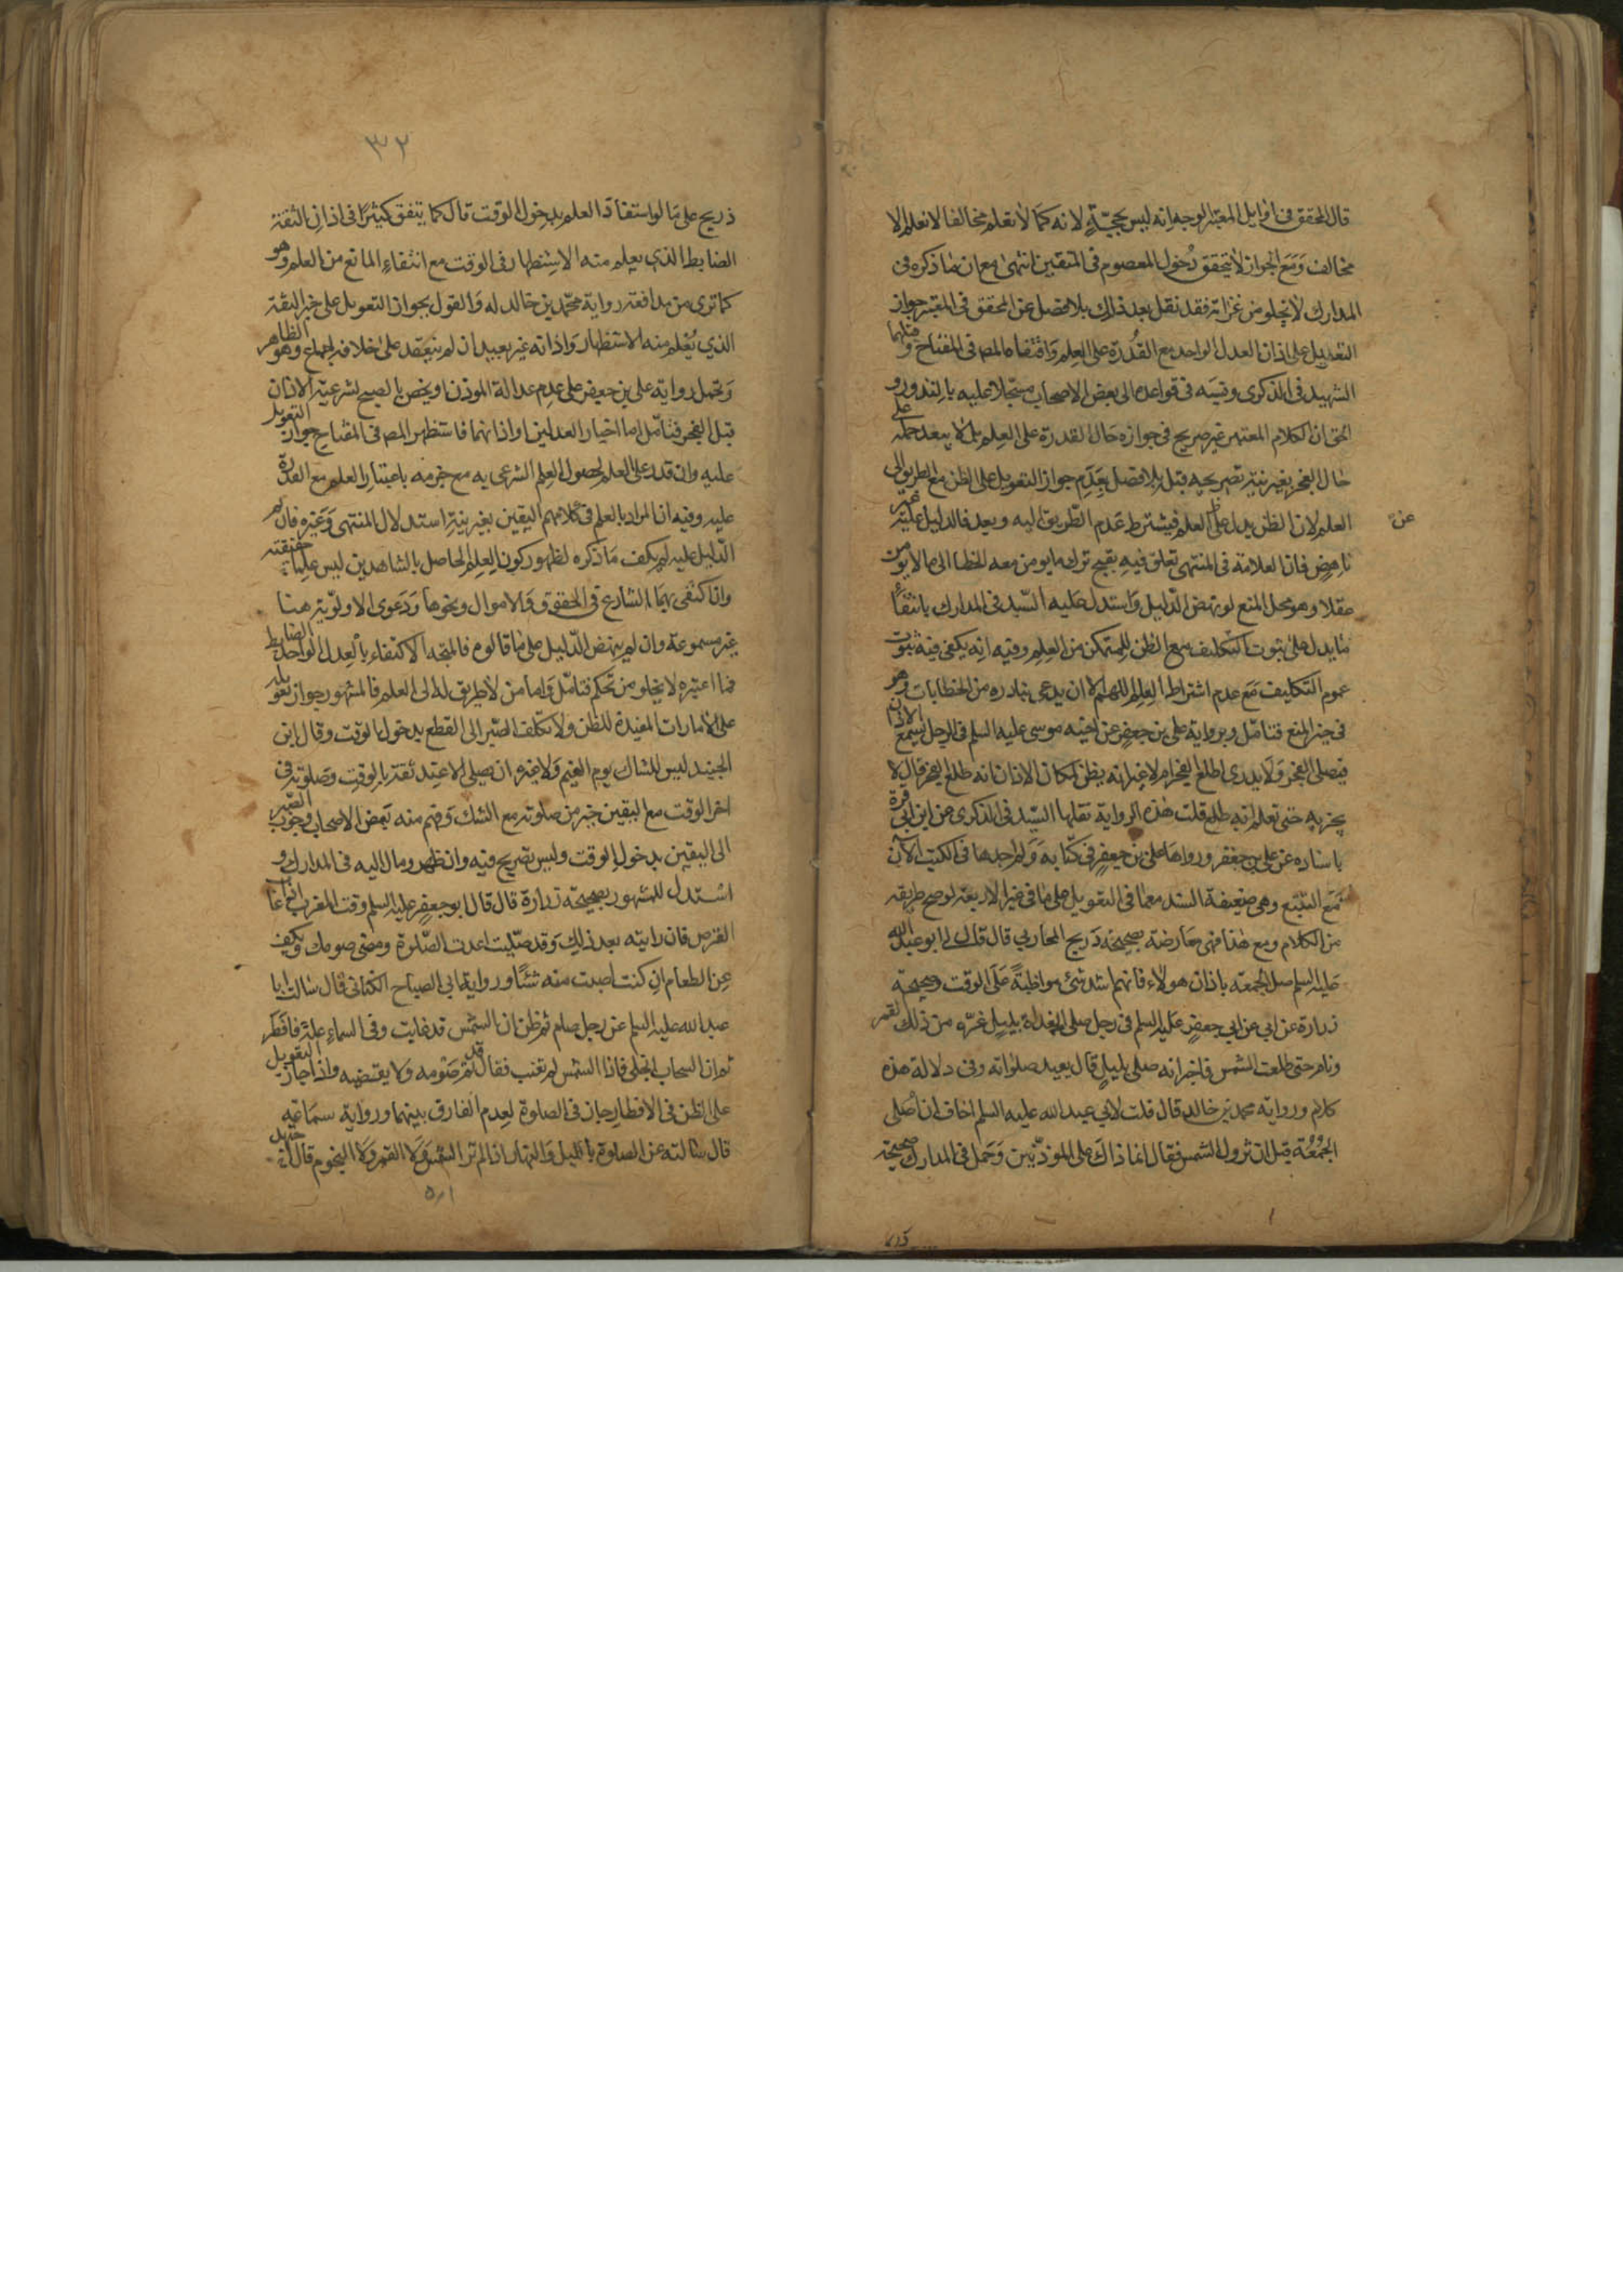 قال المحقق في اوايل المعتبر الوجه انه ليس بحجة لانه كما لا نعلم مخالفا لا نعلم ان لا
مخالف ومع الجواز لا يتحقق دخول المعصوم في المتفقين انتهى مع ان ما ذكره في
المدارك لا يخلو من غرابة فقد نقل بعد ذلك بلا فصل عن المحقق في المعتبر جواز
التعويل على اذان العدل الواحد مع القدرة على العلم واقتفاه المص في المفتاح و قبلهما
الشهيد في الذكرى ونسبه في قواعده الى بعض الاصحاب مسجلا عليه بالندور و
الحق ان كلام المعتبر غير صريح في جوازه حال القدرة على العلم بل لا يبعد حمله على
حال العجز بقرينة تصريحه قبل بلا فصل بعدم جواز التعويل على الظن مع الطريق الى
العلم لان الظن بدل عن العلم فيشترط عدم الطريق اليه وبعد فالدليل عليه غير
عن
ناهض فان العلامة في المنتهى تعلق فيه بقبح ترك ما يومن معه الخطا الى ما لا يومن
عقلا وهو محل المنع لو نهض الدليل واستدل عليه السيد في المدارك بانتفاء
ما يدل على ثبوت التكليف مع الظن للمتمكن من العلم وفيه انه يكفي فيه ثبوت
عموم التكليف مع عدم اشتراط العلم اللهم الا ان يدعى تبادره من الخطابات وهو
في حيز المنع فتامل وبرواية علي بن جعفر عن اخيه موسى عليه السلم في الرجل يسمع الاذان
فيصلي الفجر ولا يدري اطلع الفجر ام لا غير انه يظن لمكان الاذان انه طلع الفجر قال لا
يجزيه حتى تعلم انه طلع قلت هذه الرواية نقلها السيد في الذكرى عن ابن ابي قرة
باسناده عن علي بن جعفر ورواها علي بن جعفر في كتابه ولم اجدها في الكتب الان
مع التتبع وهي ضعيفة السند مع ما في التعويل على ما في غير الاربعة لو صح طريقه
من الكلام ومع هذا فهي معارضة بصحيحة ذريح المحاربي قال قال لي ابو عبد الله
عليه السلم صل الجمعة باذان هولاء فانهم اشد شئ مواظبة على الوقت وصحيحة
زرارة عن ابي جعفر عليه السلم في رجل صلى الغداة بليل غره من ذلك القمر
ونام حتى طلعت الشمس فاخبر انه صلى بليل قال يعيد صلواته وفي دلالة هذه
كلام ورواية محمد بن خالد قال قلت لابي عبد الله عليه السلم اخاف ان اصلي
الجمعة قبل ان تزول الشمس فقال انما ذاك على الموذنين وحمل في المدارك صحيحة
٣٢
ذريح على ما لو استفاد العلم بدخول الوقت قال كما يتفق كثيرا في اذان الثقة
الضابط الذي يعلم منه الاستظهار في الوقت مع انتفاء المانع من العلم وهو
كما ترى من مدافعة رواية محمد بن خالد له والقول بجواز التعويل على خبر الثقة
الذي يعلم منه الاستظهار واذانه غير بعيد ان لم ينعقد على خلافه اجماع وهو الظاهر
وتحمل رواية علي بن جعفر على عدم عدالة الموذن او يخص بالصبح لشرعية الاذان
قبل الفجر فتامل اما اخبار العدلين واذانهما فاستظهر المص في المفتاح جواز التعويل
عليه وان قدر على العلم لحصول العلم الشرعي به مع جزمه باعتبار العلم مع القدرة
عليه وفيه ان المراد بالعلم في كلامهم اليقين بقرينة استدلال المنتهى وغيره فان لم
الدليل عليه لم يكف ما ذكره لظهور كون العلم الحاصل بالشاهدين ليس علما حقيقة
وان اكتفى بهما الشارع في الحقوق والاموال ونحوها ودعوى الاولوية هنا
غير مسموعة وان لم ينهض الدليل على ما قالوه فالمتجه الاكتفاء بالعدل الواحد الضابط
فما اعتبره لا يخلو من تحكم فتامل واما من لا طريق له الى العلم فالمشهور جواز تعويله
على الامارات المفيدة للظن ولا تكلف الصبر الى القطع بدخول الوقت وقال ابن
الجنيد ليس للشاك يوم الغيم ولا غيره ان يصلي الا عند ثقته بالوقت وصلوته في
اخر الوقت مع اليقين خير من صلوته مع الشك وفهم منه بعض الاصحاب وجوب الصبر
الى اليقين بدخول الوقت وليس بصريح فيه وان ظهر ومال اليه في المدارك و
استدل للمشهور بصحيحة زرارة قال قال ابو جعفر عليه السلم وقت المغرب اذا غاب
القرص فان رايته بعد ذلك وقد صليت اعدت الصلوة ومضى صومك وتكف
عن الطعام ان كنت اصبت منه شئا ورواية ابي الصباح الكناني قال سالت ابا
عبد الله عليه السلم عن رجل صام ثم ظن ان الشمس قد غابت وفي السماء علة فافطر
ثم ان السحاب انجلى فاذا الشمس لم تغب فقال قد تم صومه ولا يقضيه واذا جاز التعويل
على الظن في الافطار جاز في الصلوة لعدم الفارق بينهما ورواية سماعة
قال سالته عن الصلوة بالليل والنهار اذا لم تر الشمس ولا القمر ولا النجوم قال